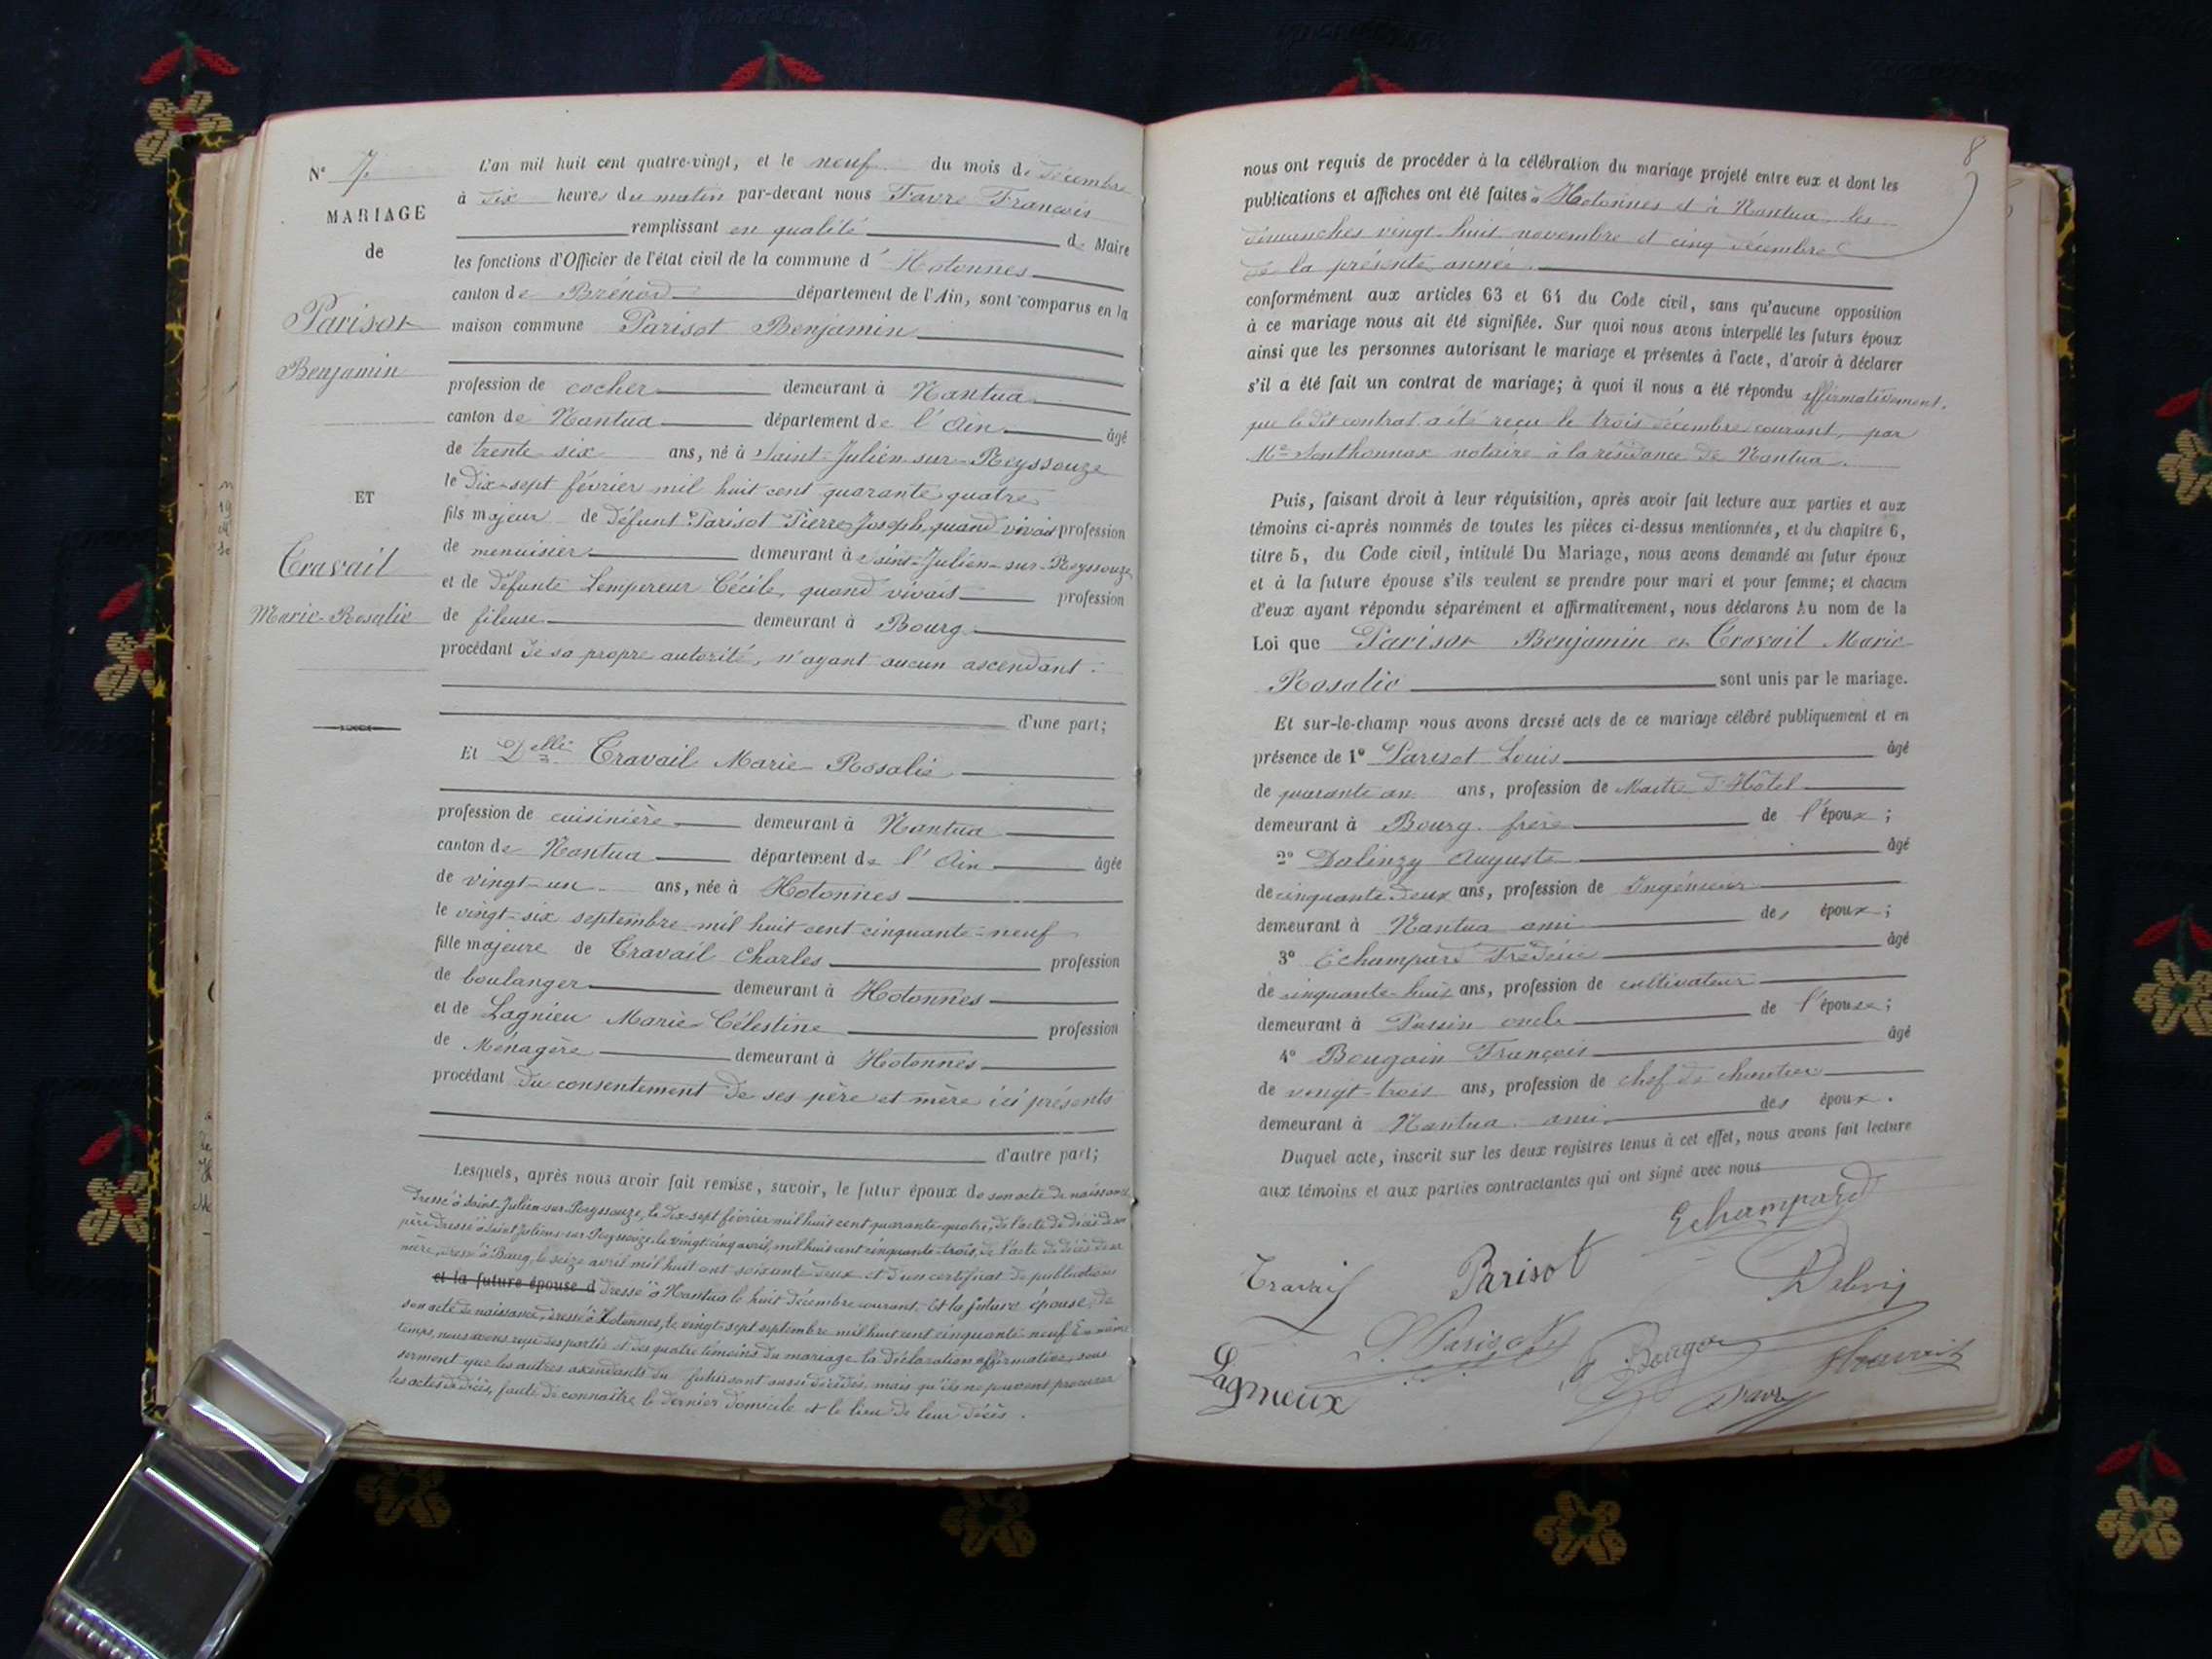 N° 7
MARIAGE
de
Parisot
Benjamin
ET
Travail
Marie-Rosalie
L'an mil huit cent quatre-vingt, et le neuf du mois de décembre
à dix heures du matin par-devant nous Favre François
remplissant en qualité de Maire
les fonctions d'Officier de l'état civil de la commune d' Hotonnes
canton de Brénod département de l'Ain, sont comparus en la
maison commune Parisot Benjamin
profession de cocher demeurant à Nantua
canton de Nantua département de l'Ain âgé
de trente-six ans, né à Saint-Julien-sur-Reyssouze
le dix-sept février mil huit cent quarante quatre
fils majeur de défunt Parisot Pierre Joseph, quand vivait profession
de menuisier demeurant à Saint-Julien-sur-Reyssouze
et de défunte Lempereur Cécile, quand vivait profession
de fileuse demeurant à Bourg
procédant de sa propre autorité, n'ayant aucun ascendant.
d'une part;
Et Delle Travail Marie Rosalie
profession de cuisinière demeurant à Nantua
canton de Nantua département de l'Ain âgée
de vingt-un ans, née à Hotonnes
le vingt-six septembre mil huit cent cinquante-neuf
fille majeure de Travail Charles profession
de boulanger demeurant à Hotonnes
et de Lagnieu Marie-Célestine profession
de Ménagère demeurant à Hotonnes
procédant du consentement de ses père et mère ici présents
d'autre part;
Lesquels, après nous avoir fait remise, savoir, le futur époux de son acte de naissance
dressé à Saint-Julien-sur-Reyssouze, le dix-sept février mil huit cent quarante-quatre, de l'acte de décès de son
père dressé à Saint Julien-sur-Reyssouze, le vingt-cinq avril, mil huit cent cinquante-trois, de l'acte de décès de sa
mère, dressé à Bourg, le seize avril mil huit cent soixante-deux et d'un certificat de publications
et la future épouse d dressé à Nantua le huit décembre courant. Et la future épouse, de
son acte de naissance, dressé à Hotonnes, le vingt-sept septembre mil huit cent cinquante-neuf. En même
temps, nous avons reçu des parties et des quatre témoins du mariage la déclaration affirmative, sous
serment que les autres ascendants du futur sont aussi décédés, mais qu'ils ne peuvent procurer
les actes de décès, faute de connaître le dernier domicile et le lieu de leur décès.
8
nous ont requis de procéder à la célébration du mariage projeté entre eux et dont les
publications et affiches ont été faites à Hotonnes et à Nantua les
dimanches vingt-huit novembre et cinq décembre
de la présente année.
conformément aux articles 63 et 64 du Code civil, sans qu'aucune opposition
à ce mariage nous ait été signifiée. Sur quoi nous avons interpellé les futurs époux
ainsi que les personnes autorisant le mariage et présentes à l'acte, d'avoir à déclarer
s'il a été fait un contrat de mariage; à quoi il nous a été répondu affirmativement,
que le dit contrat a été reçu le trois décembre courant, par
Me Sonthonnax notaire à la résidance de Nantua.
Puis, faisant droit à leur réquisition, après avoir fait lecture aux parties et aux
témoins ci-après nommés de toutes les pièces ci-dessus mentionnées, et du chapitre 6,
titre 5, du Code civil, intitulé Du Mariage, nous avons demandé au futur époux
et à la future épouse s'ils veulent se prendre pour mari et pour femme; et chacun
d'eux ayant répondu séparément et affirmativement, nous déclarons Au nom de la
Loi que Parisot Benjamin et Travail Marie
Rosalie sont unis par le mariage.
Et sur-le-champ nous avons dressé acte de ce mariage célébré publiquement et en
présence de 1° Parisot Louis âgé
de quarante un ans, profession de Maître d'Hôtel
demeurant à Bourg frère de l'époux;
2° Dalinzy Auguste âgé
de cinquante deux ans, profession de Ingénieur
demeurant à Nantua ami des époux;
3° Echampard Frédéric âgé
de cinquante-huit ans, profession de cultivateur
demeurant à Passin oncle de l'épouse;
4° Bougoin François âgé
de vingt-trois ans, profession de chef de chantier
demeurant à Nantua, ami des époux.
Duquel acte, inscrit sur les deux registres tenus à cet effet, nous avons fait lecture
aux témoins et aux parties contractantes qui ont signé avec nous
Echampard
Travail Parisot
L. Parisot
Lagnieux
Favre